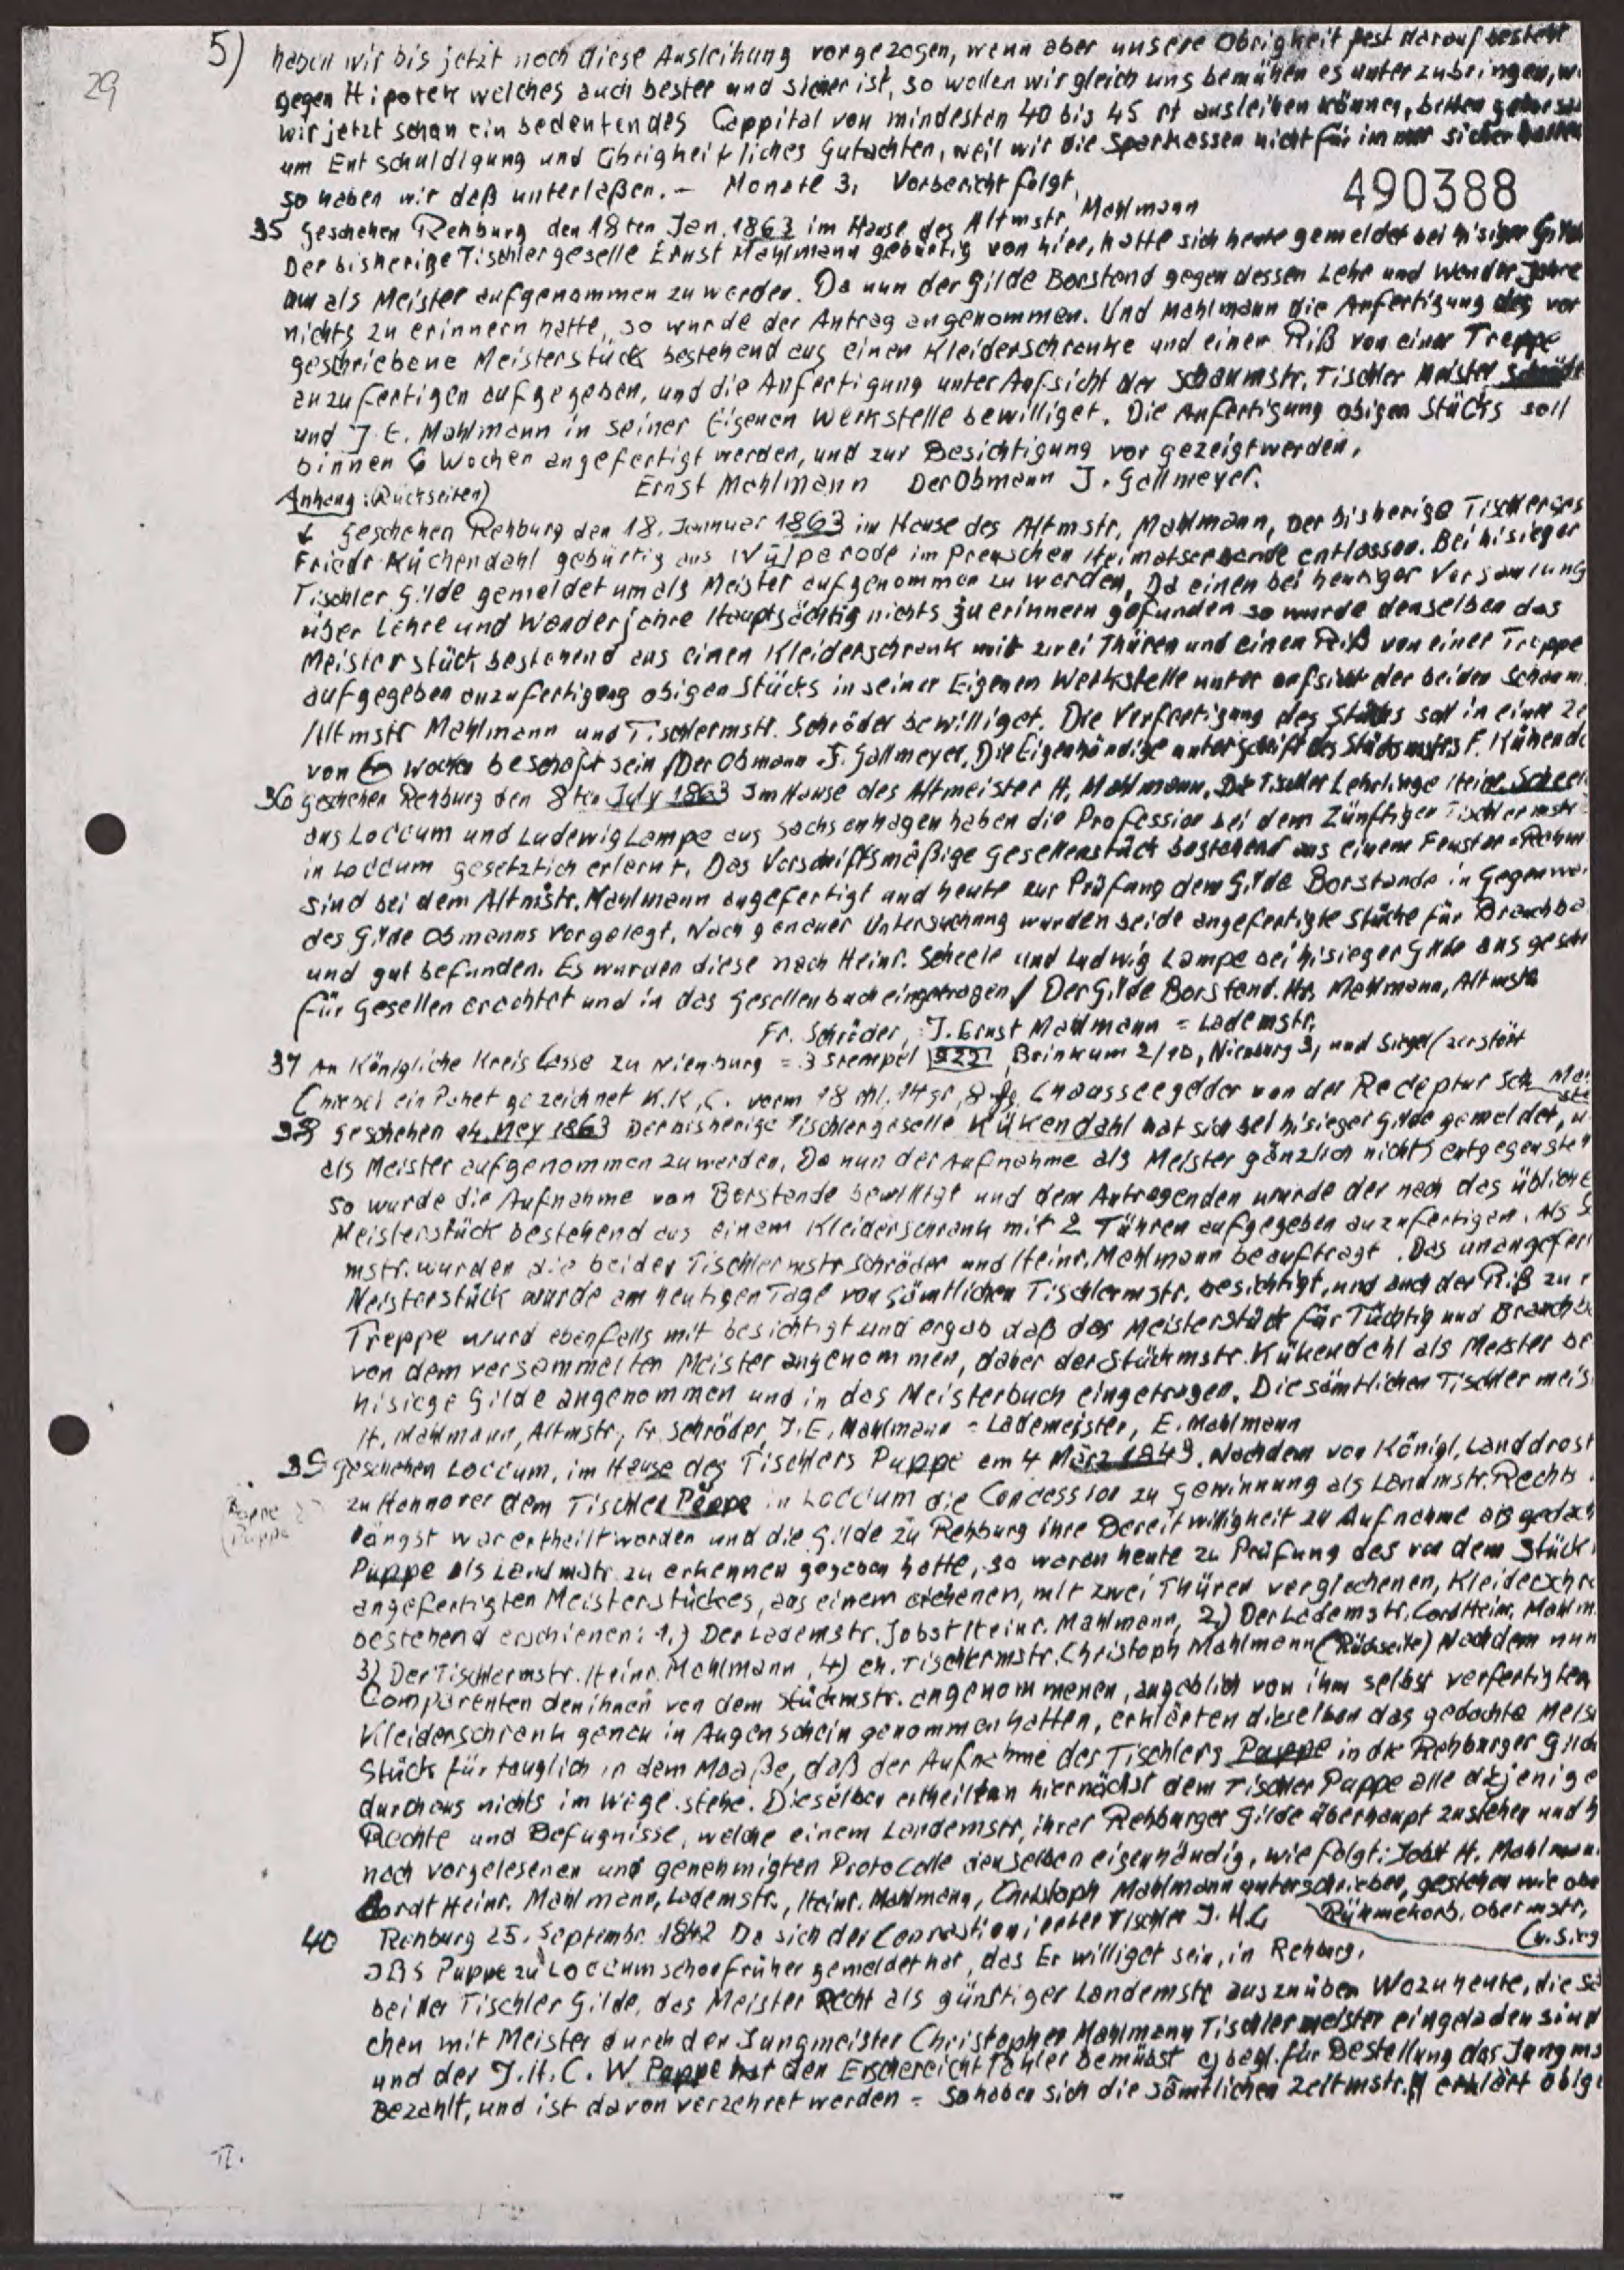 5) haben wir bis jetzt noch diese Ausleihung vorgezogen, wenn aber unsere Obrigkeit fest darauf besteht
29
gegen Hipotek welches auch bester und sicher ist, so wollen wir gleich uns bemühen es unter zubringen,
wir jetzt schon ein bedeutendes Cappital von mindesten 40 bis 45 rt ausleihen können, bitten
um Entschuldigung und Obrigheitliches Gutachten, weil wir die Sparkassen nicht für immer sicher
so haben wir daß unterlaßen. – Monate 3, Vorbericht folgt,
490388
35 Geschehen Rehburg den 18ten Jan. 1863 im Hause des Altmstr, Mahlmann
Der bisherige Tischlergeselle Ernst Mahlmann gebürtig von hier, hatte sich heute gemeldet bei hisiger Gilde
um als Meister aufgenommen zu werden. Da nun der Gilde Borstand gegen dessen Lehr und Wander Jahre
nichts zu erinnern hatte, so wurde der Antrag angenommen. Und Mahlmann die Anfertigung des vor
geschriebene Meisterstück bestehend aus einen Kleiderschranke und einer Riß von einer Treppe
anzufertigen aufgegeben, und die Anfertigung unter Aufsicht der Schaumstr, Tischler Meister
und J. E. Mahlmann in seiner Eigenen Werkstelle bewilliget. Die Anfertigung obigen Stücks soll
binnen 6 Wochen angefertigt werden, und zur Besichtigung vor gezeigt werden,
Ernst Mahlmann Der Obmann J. Gallmeyer.
Anhang: (Rückseiten)
↓ Geschehen Rehburg den 18. Jannuar 1863 im Hause des Altmstr, Mahlmann, Der bisherige Tischlerges
Friedr. Küchendahl gebürtig aus Wülperode im Preuschen entlassen. Bei hisieger
Tischler Gilde gemeldet um als Meister aufgenommen zu werden, Da einen bei heutiger Versamlung
über Lehre und Wanderjahre Hauptsächtig nichts zu erinnern gefunden so wurde denselben das
Meisterstück bestehend aus einen Kleiderschrank mit zwei Thüren und einen Riß von einer Treppe
aufgegeben anzufertigung obigen Stücks in seiner Eigenen Werkstelle unter aufsicht der beiden Schaum.
Altmstr Mahlmann und Tischlermstr. Schröder bewilliget. Die Verfertigung des Stücks soll in einer Ze
von 6 Wochen beschaft sein / Der Obmann J. Gallmeyer, Die Eigenhändige unterschrift des Stückmstrs F. Kühenda
36 Geschehen Rehburg den 8ten July 1863 Im Hause des Altmeister H. Mahlmann, Die Tischler Lehrlinge Heinr. Scheel
aus Loccum und Ludewig Lampe aus Sachsenhagen haben die Profession bei dem Zünftigen Tischlermstr
in Loccum gesetzlich erlernt, Das Vorschriftsmäßige Gesellenstück bestehend aus einem Fenster=Rahm
sind bei dem Altmstr. Mahlmann angefertigt und heute zur Prüfung dem Gilde Borstande in Gegenwar
des Gilde Obmanns vorgelegt, Nach genauer Untersuchung wurden beide angefertigte Stücke für Brauchba
und gut befunden. Es wurden diese nach Heinr. Scheele und Ludwig Lampe bei hisieger Gilde aus
für Gesellen erachtet und in das Gesellenbuch eingetragen / Der Gilde Borstand. Mahlmann, Altmstr
Fr. Schröder, J. Ernst Mahlmann = Lademstr,
37 An Königliche Kreis Casse zu Nienburg = 3 Stempel 922 Brinkum 2/10, Nienburg 3, und Siegel (zerstört
(hiebei ein Paket gezeichnet K. K. C. 14 gr, 8 Chausseegelder von der Receptur Sch
38 Geschehen 24. Mey 1863 Der bisherige Tischlergeselle Kükendahl hat sich bei hisieger Gilde gemeldet, u
als Meister aufgenommen zu werden, Da nun der Aufnahme als Meister gänzlich nichts entgegensteh
so wurde die Aufnahme von Borstande bewilligt und dem Antragenden wurde der nach das übliche
Meisterstück bestehend aus einem Kleiderschrank mit 2 Tühren aufgegeben anzufertigen. Als S
mstr. wurden die beiden Tischlermstr Schröder und Heinr. Mahlmann beauftragt. Das unangefer
Meisterstück wurde am heutigen Tage von Sämtlichen Tischlermstr. besichtigt, und auch der Riß zu
Treppe wurd ebenfalls mit besichtigt und ergab daß das Meisterstück für Tüchtig und Brauchb
von dem versammelten Meister angenommen, daher der Stückmstr. Kükendahl als Meister
hisiege Gilde angenommen und in das Meisterbuch eingetragen. Die sämtlichen Tischlermeis
H. Mahlmann, Altmstr, Fr. Schröder, J. E. Mahlmann = Lademeister, E. Mahlmann
39 Geschehen Loccum, im Hause des Tischlers Puppe am 4 März 1849. Nachdem von Königl. Landdrost
zu Hannover dem Tischler Päppe in Loccum die Concession zu Gewinnung als Landmstr. Rechts
längst war ertheilt worden und die Gilde zu Rehburg ihre Bereitwilligheit zu Aufnahme als gedach
Puppe als Landmstr. zu erkennen gegeben hatte, so waren heute zu Prüfung des von dem Stück
angefertigten Meisterstückes, aus einem eichenen, mit zwei Thüren verglechenen, Kleiderschr
bestehend erschienen: 1.) Der Lademstr. Jobst Heinr. Mahlmann, 2.) Der Lademstr. Cord Heinr. Mahlm
3) Der Tischlermstr. Heinr. Mahlmann, 4) Tischlermstr. Christoph Mahlmann (Rückseite) Nachdem nun
Comparenten den ihnen von dem Stückmstr. angenommenen, angeblich von ihm selbst verfertigten
Kleiderschrank genau in Augenschein genommen hatten, erklärten dieselben das gedachte Meis
Stück für tauglich in dem Maaße, daß der Aufnahme des Tischlers Puppe in die Rehburger Gilde
durchaus nichts im Wege stehe. Dieselben ertheilten hiernächst dem Tischler Puppe alle diejenige
Rechte und Befugnisse, welche einem Landemstr, ihrer Rehburger Gilde überhaupt zustehen und h
nach vorgelesenen und genehmigten Protocolle denselben eigenhändig, wie folgt: Jobst H. Mahlmann
Cordt Heinr. Mahlmann, Lademstr., Heinr. Mahlmann, Christoph Mahlmann unterschrieben, gestehen wie obe
Rühmekorb, Obermstr,
40 Rehburg 25. Septembr. 1842 Da sich der Tischler J. H. C
Puppe zu Loccum schon früher gemeldet hat, das Er williget sein, in Rehburg,
bei der Tischler Gilde, das Meister Recht als günstiger Landemstr auszuüben Wozu heute, die Sä
chen mit Meister durch den Jungmeister Christopher Mahlmann Tischlermeister eingeladen sind
und der J. H. C. W. Pappe hat den für Bestellung das Jungms
Bezahlt, und ist davon verzehret werden = So haben sich die sämtlichen erklärt oblge
II.